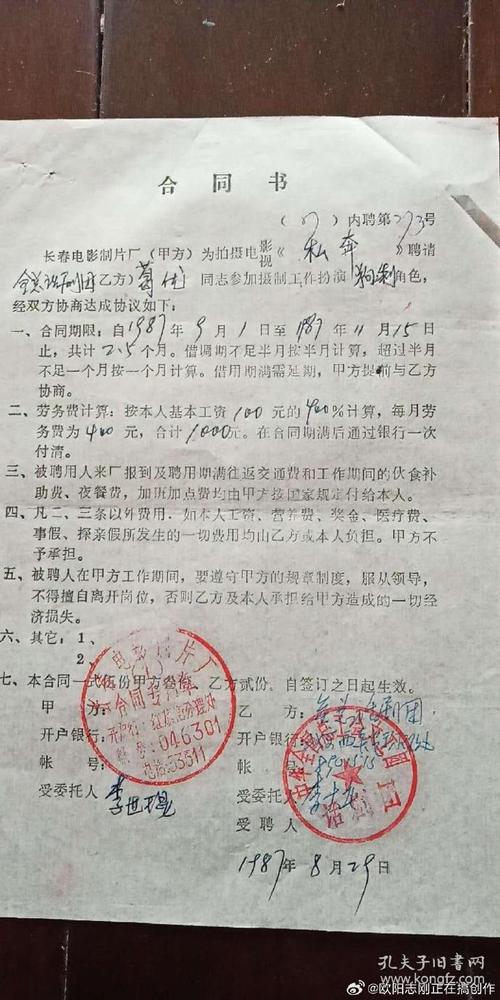 合同书
(87)内聘第273号
长春电影制片厂(甲方)为拍摄电影视《私奔》聘请
全总话剧团(乙方)葛优同志参加摄制工作扮演狗剩角色,
经双方协商达成协议如下:
一、合同期限:自1987年9月1日至1987年11月15日
止,共计2.5个月。借调期不足半月按半月计算,超过半月
不足一个月按一个月计算。借用期满需延期,甲方提前与乙方
协商。
二、劳务费计算:按本人基本工资100元的400%计算,每月劳
务费为400元,合计1000元。在合同期满后通过银行一次
付清。
三、被聘用人来厂报到及聘用期满往返交通费和工作期间的伙食补
助费、夜餐费,加班加点费均由甲方按国家规定付给本人。
四、凡二、三条以外费用,如本人工资、营养费、奖金、医疗费、
事假、探亲假所发生的一切费用均由乙方或本人负担。甲方不
予承担。
五、被聘人在甲方工作期间,要遵守甲方的规章制度,服从领导,
不得擅自离开岗位,否则乙方及本人承担给甲方造成的一切经
济损失。
六、其它:1、
2、
七、本合同一式伍份甲方叁份,乙方贰份。自签订之日起生效。
甲方: 乙方:全总话剧团
开户银行: 开户银行:
帐号: 帐号:
受委托人 李世 受委托人 李
受聘人
合同专用章
046301
电话:53311
1987年8月29日
孔夫子旧书网
@欧阳志刚正在搞创作